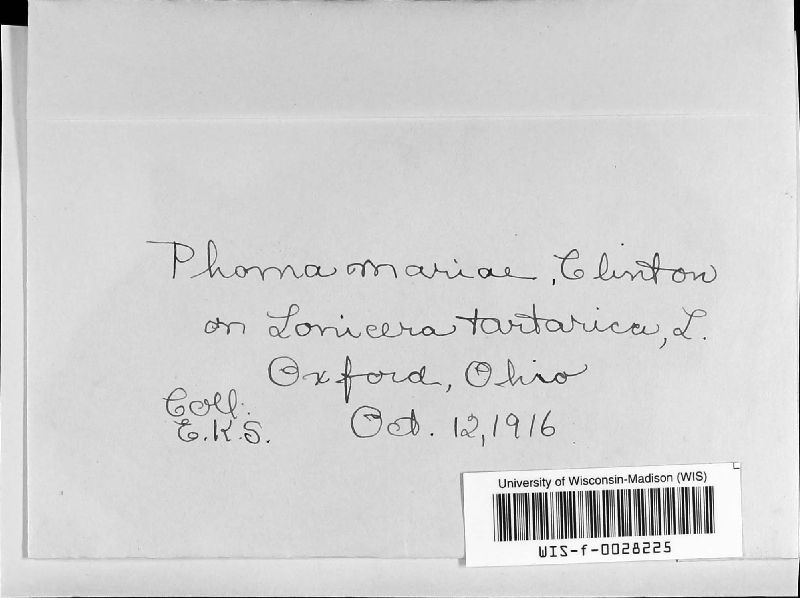 Phoma mariae, Clinton
on Lonicera tartarica, L.
Oxford, Ohio
Coll.
E.K.S.
Oct. 12, 1916
University of Wisconsin-Madison (WIS)
WIS-f-0028225